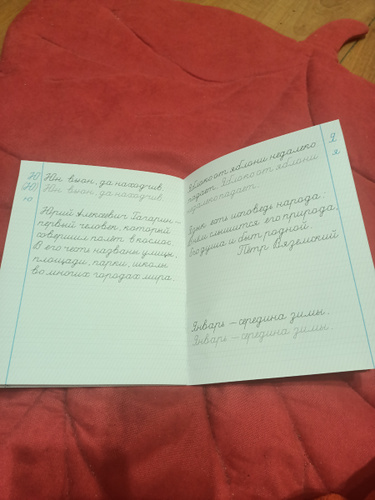 Ю
Юн вьюн, да находчив.
(Ю)
Юн вьюн, да находчив.
ю
Юрий Алексеевич Гагарин –
первый человек, который
совершил полёт в космос.
В его честь названы улицы,
площади, парки, школы
во многих городах мира.
Я
Яблоко от яблони недалеко
падает. Яблоко от яблони
я
недалеко падает.
Язык есть исповедь народа:
В нём слышится его природа,
Его душа и быт родной.
Пётр Вяземский
Январь – середина зимы.
Январь – середина зимы.